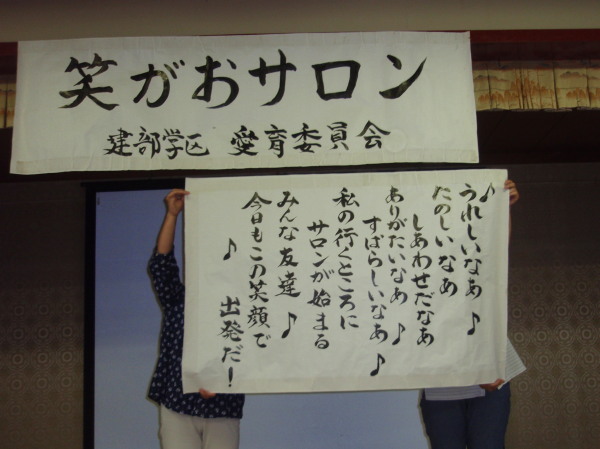 笑がおサロン
建部学区 愛育委員会
♪うれしいなあ♪
たのしいなあ
しあわせだなあ
ありがたいなあ♪
すばらしいなあ♪
私の行くところに
サロンが始まる
みんな友達♪
今日もこの笑顔で
♪出発だ!